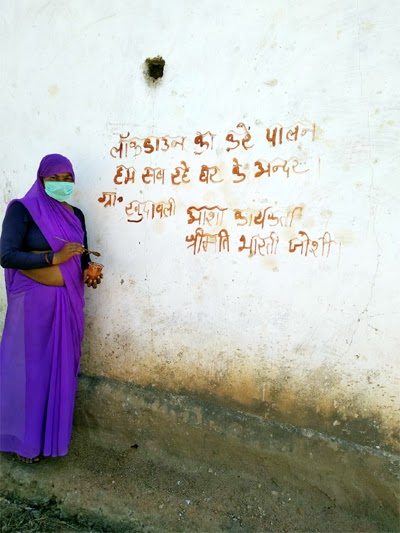 लॉकडाउन का करें पालन
हम सब रहे घर के अन्दर।
ग्रा॰ आशा कार्यकर्ता
श्रीमति भारती जोशी।